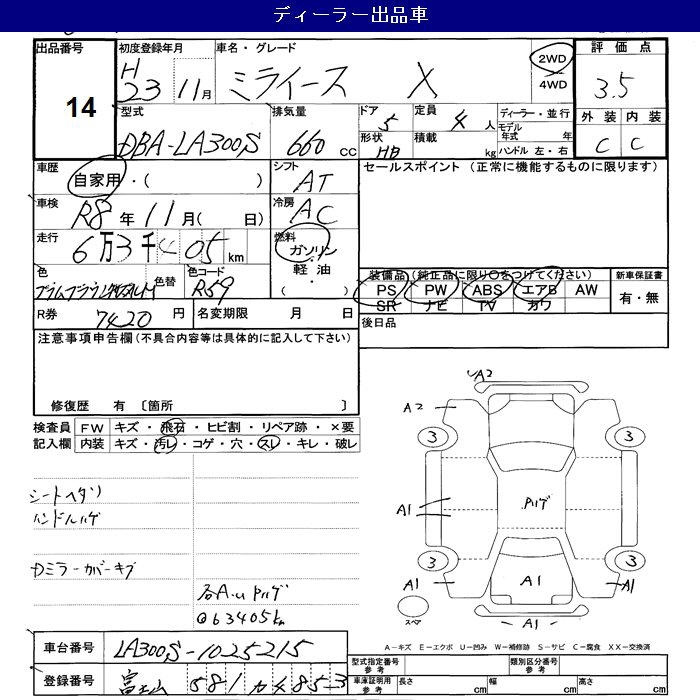 ディーラー出品車
出品番号 初度登録年月 車名・グレード 評価点
14 H23 11月 ミライース X 2WD 4WD 3.5
型式 排気量 ドア 定員 ディーラー・並行 外装 内装
DBA-LA300S 660 cc 5 4人 モデル年式 年 C C
形状 積載 ハンドル 左・右
HB kg
車歴 シフト セールスポイント (正常に機能するものに限ります)
自家用・( ) AT
車検 冷房
R8年11月( 日) AC
走行 燃料
6万3千405km ガソリン
軽油
( )
色 色替 色コード 装備品(純正品に限り○をつけてください) 新車保証書
R59 PS PW ABS エアB AW 有・無
SR ナビ TV カワ
R券 7420円 名変期限 月 日 後日品
注意事項申告欄(不具合内容等は具体的に記入して下さい)
修復歴 有 〔箇所 〕
検査員 FW キズ・飛石・ヒビ割・リペア跡・×要
記入欄 内装 キズ・汚レ・コゲ・穴・スレ・キレ・破レ
シートヘタリ
ハンドルハゲ
カミラーカバーキズ
@63405km
A2
A2
3 3
A1 Pハゲ
3 3
A1 A1 A1
スペア A1
A-キズ E-エクボ U-凹み W-補修跡 S-サビ C-腐食 XX-交換済
車台番号 LA300S-1025215
登録番号 富士山 581 か 853
型式指定番号 参考 類別区分番号 参考
車庫証明用 参考 長さ cm 幅 cm 高さ cm